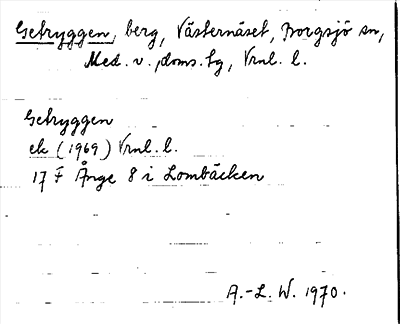 Getryggen, berg, Västernäset, Borgsjö sn,
Med. v. doms. tg, Vrnl. l.
Getryggen
ek (1969) Vrnl. l.
17 F Ånge 8 i Lombäcken
A.-L. W. 1970.